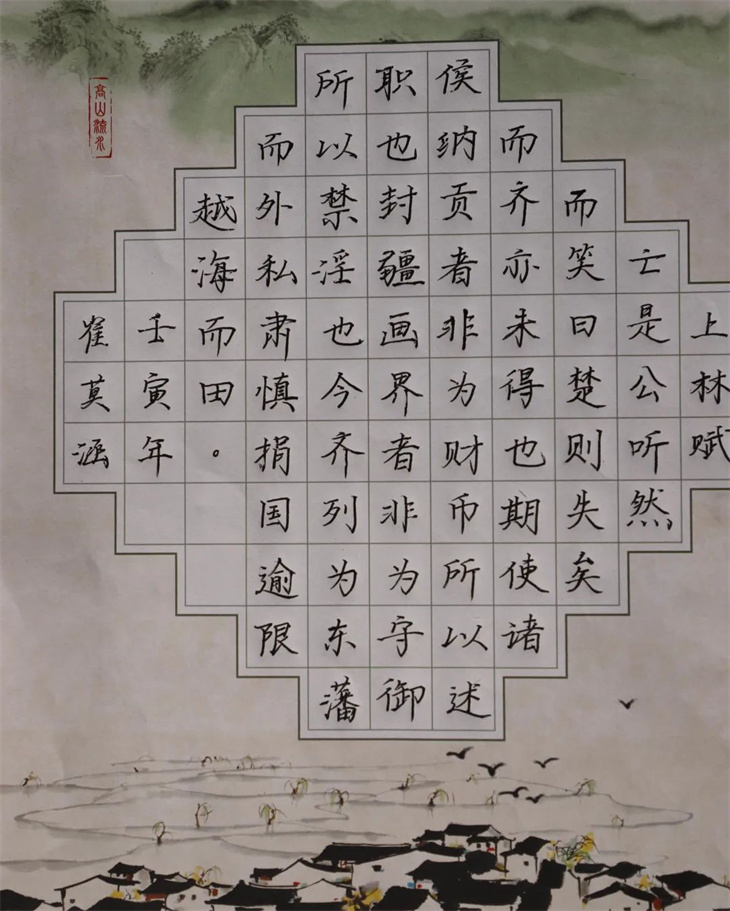 上林赋
亡是公听然
而笑曰楚则失矣
而齐亦未得也期使诸
侯纳贡者非为财币所以述
职也封疆画界者非为守御
所以禁淫也今齐列为东藩
而外私肃慎捐国逾限
越海而田。
壬寅年
崔莫涵
高山流水